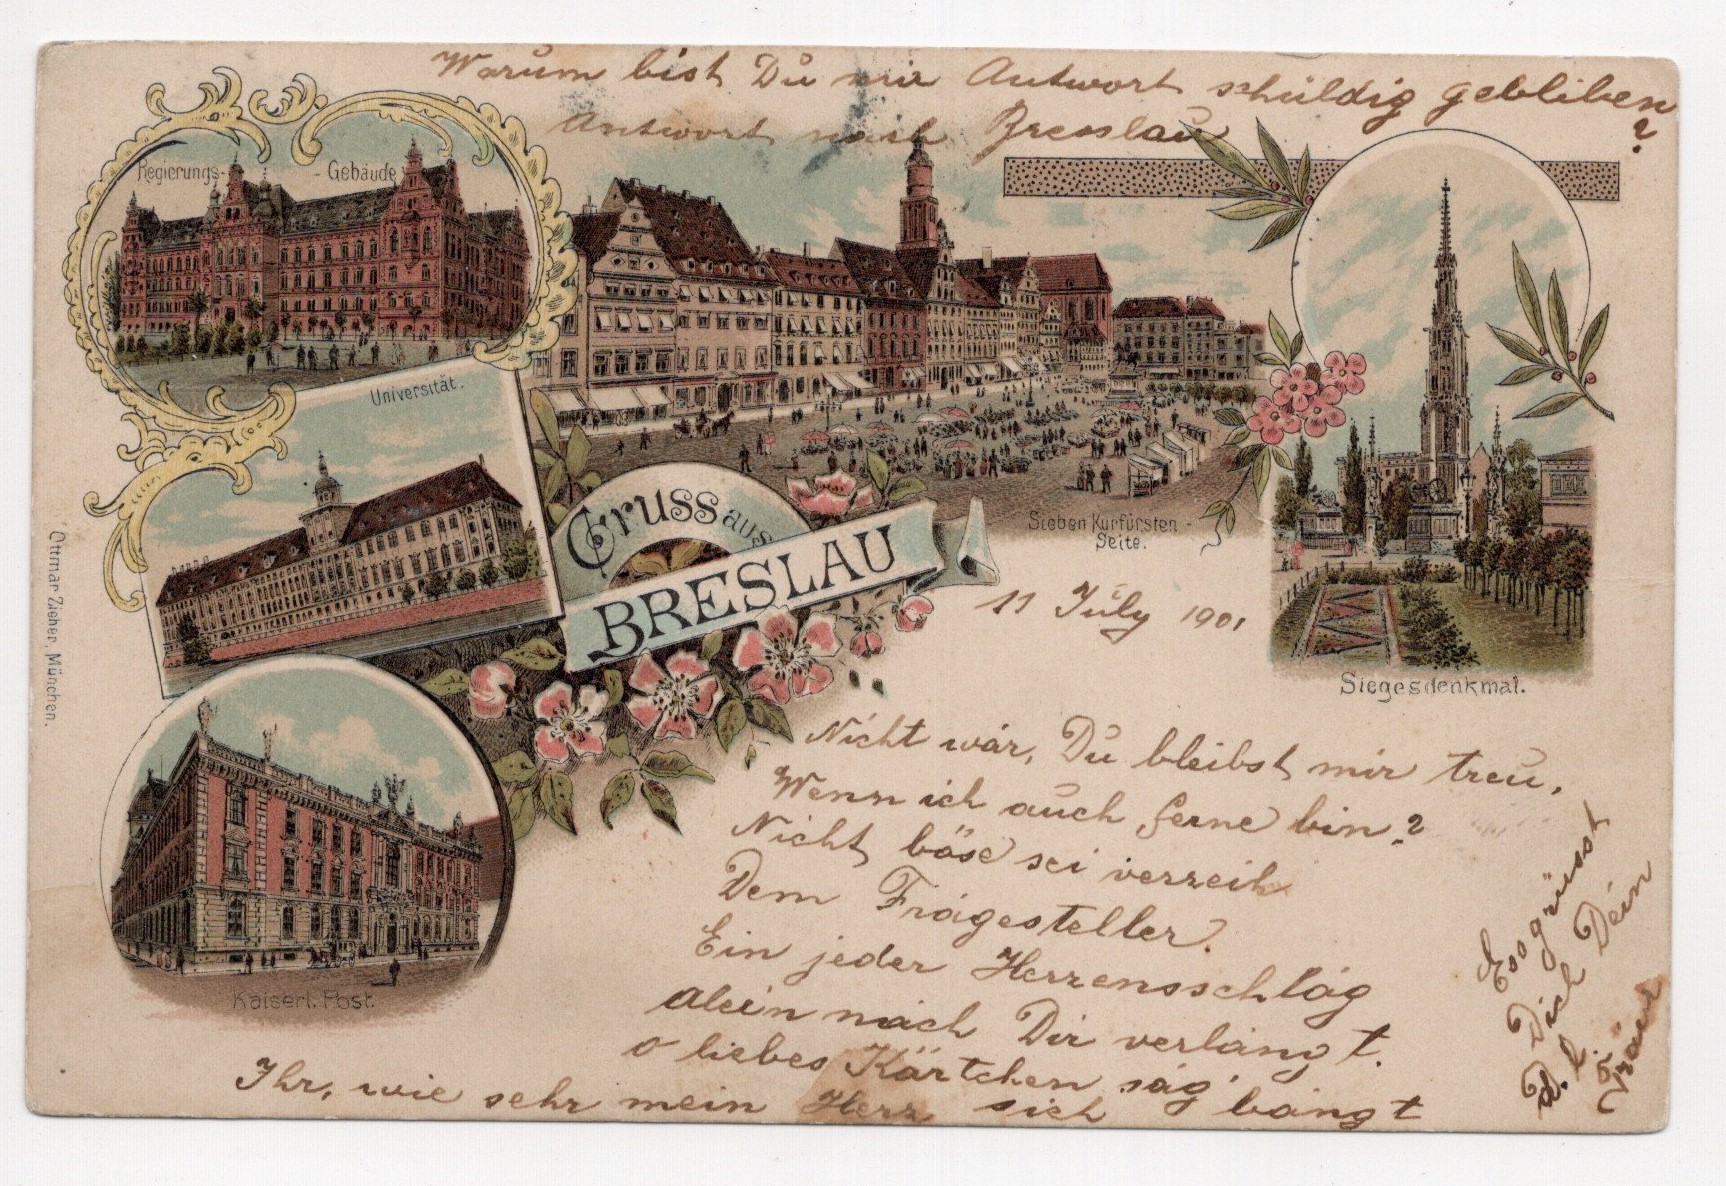 Warum bist Du mir Antwort schuldig gebliben
Antwort nach Bresslau ?
Regierungs- - Gebäude
Universität.
Gruss aus
BRESLAU
Sieben Kurfürsten -
Seite.
Siegesdenkmal.
Kaiserl. Post.
Ottmar Zieher, München.
11 July 1901
Nicht war, Du bleibst mir treu,
Wenn ich auch ferne bin?
Nicht böse sei verzeih
Dem Fragesteller.
Ein jeder Herzensschlag
Alein nach Dir verlangt.
O liebes Kärtchen sag'
Ihr, wie sehr mein Herz sich bangt
Es grüsst
Dich Dein
D. l.